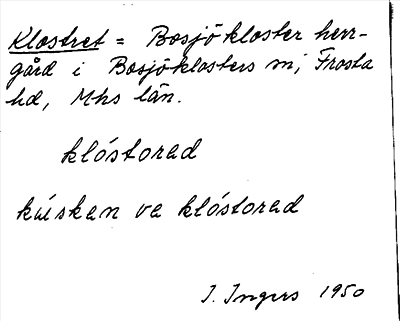 Klostret = Bosjökloster herr-
gård i Bosjöklosters sn, Frosta
hd, Mhs län.
klóstorad
kúsken va klóstorad
I. Ingers 1950